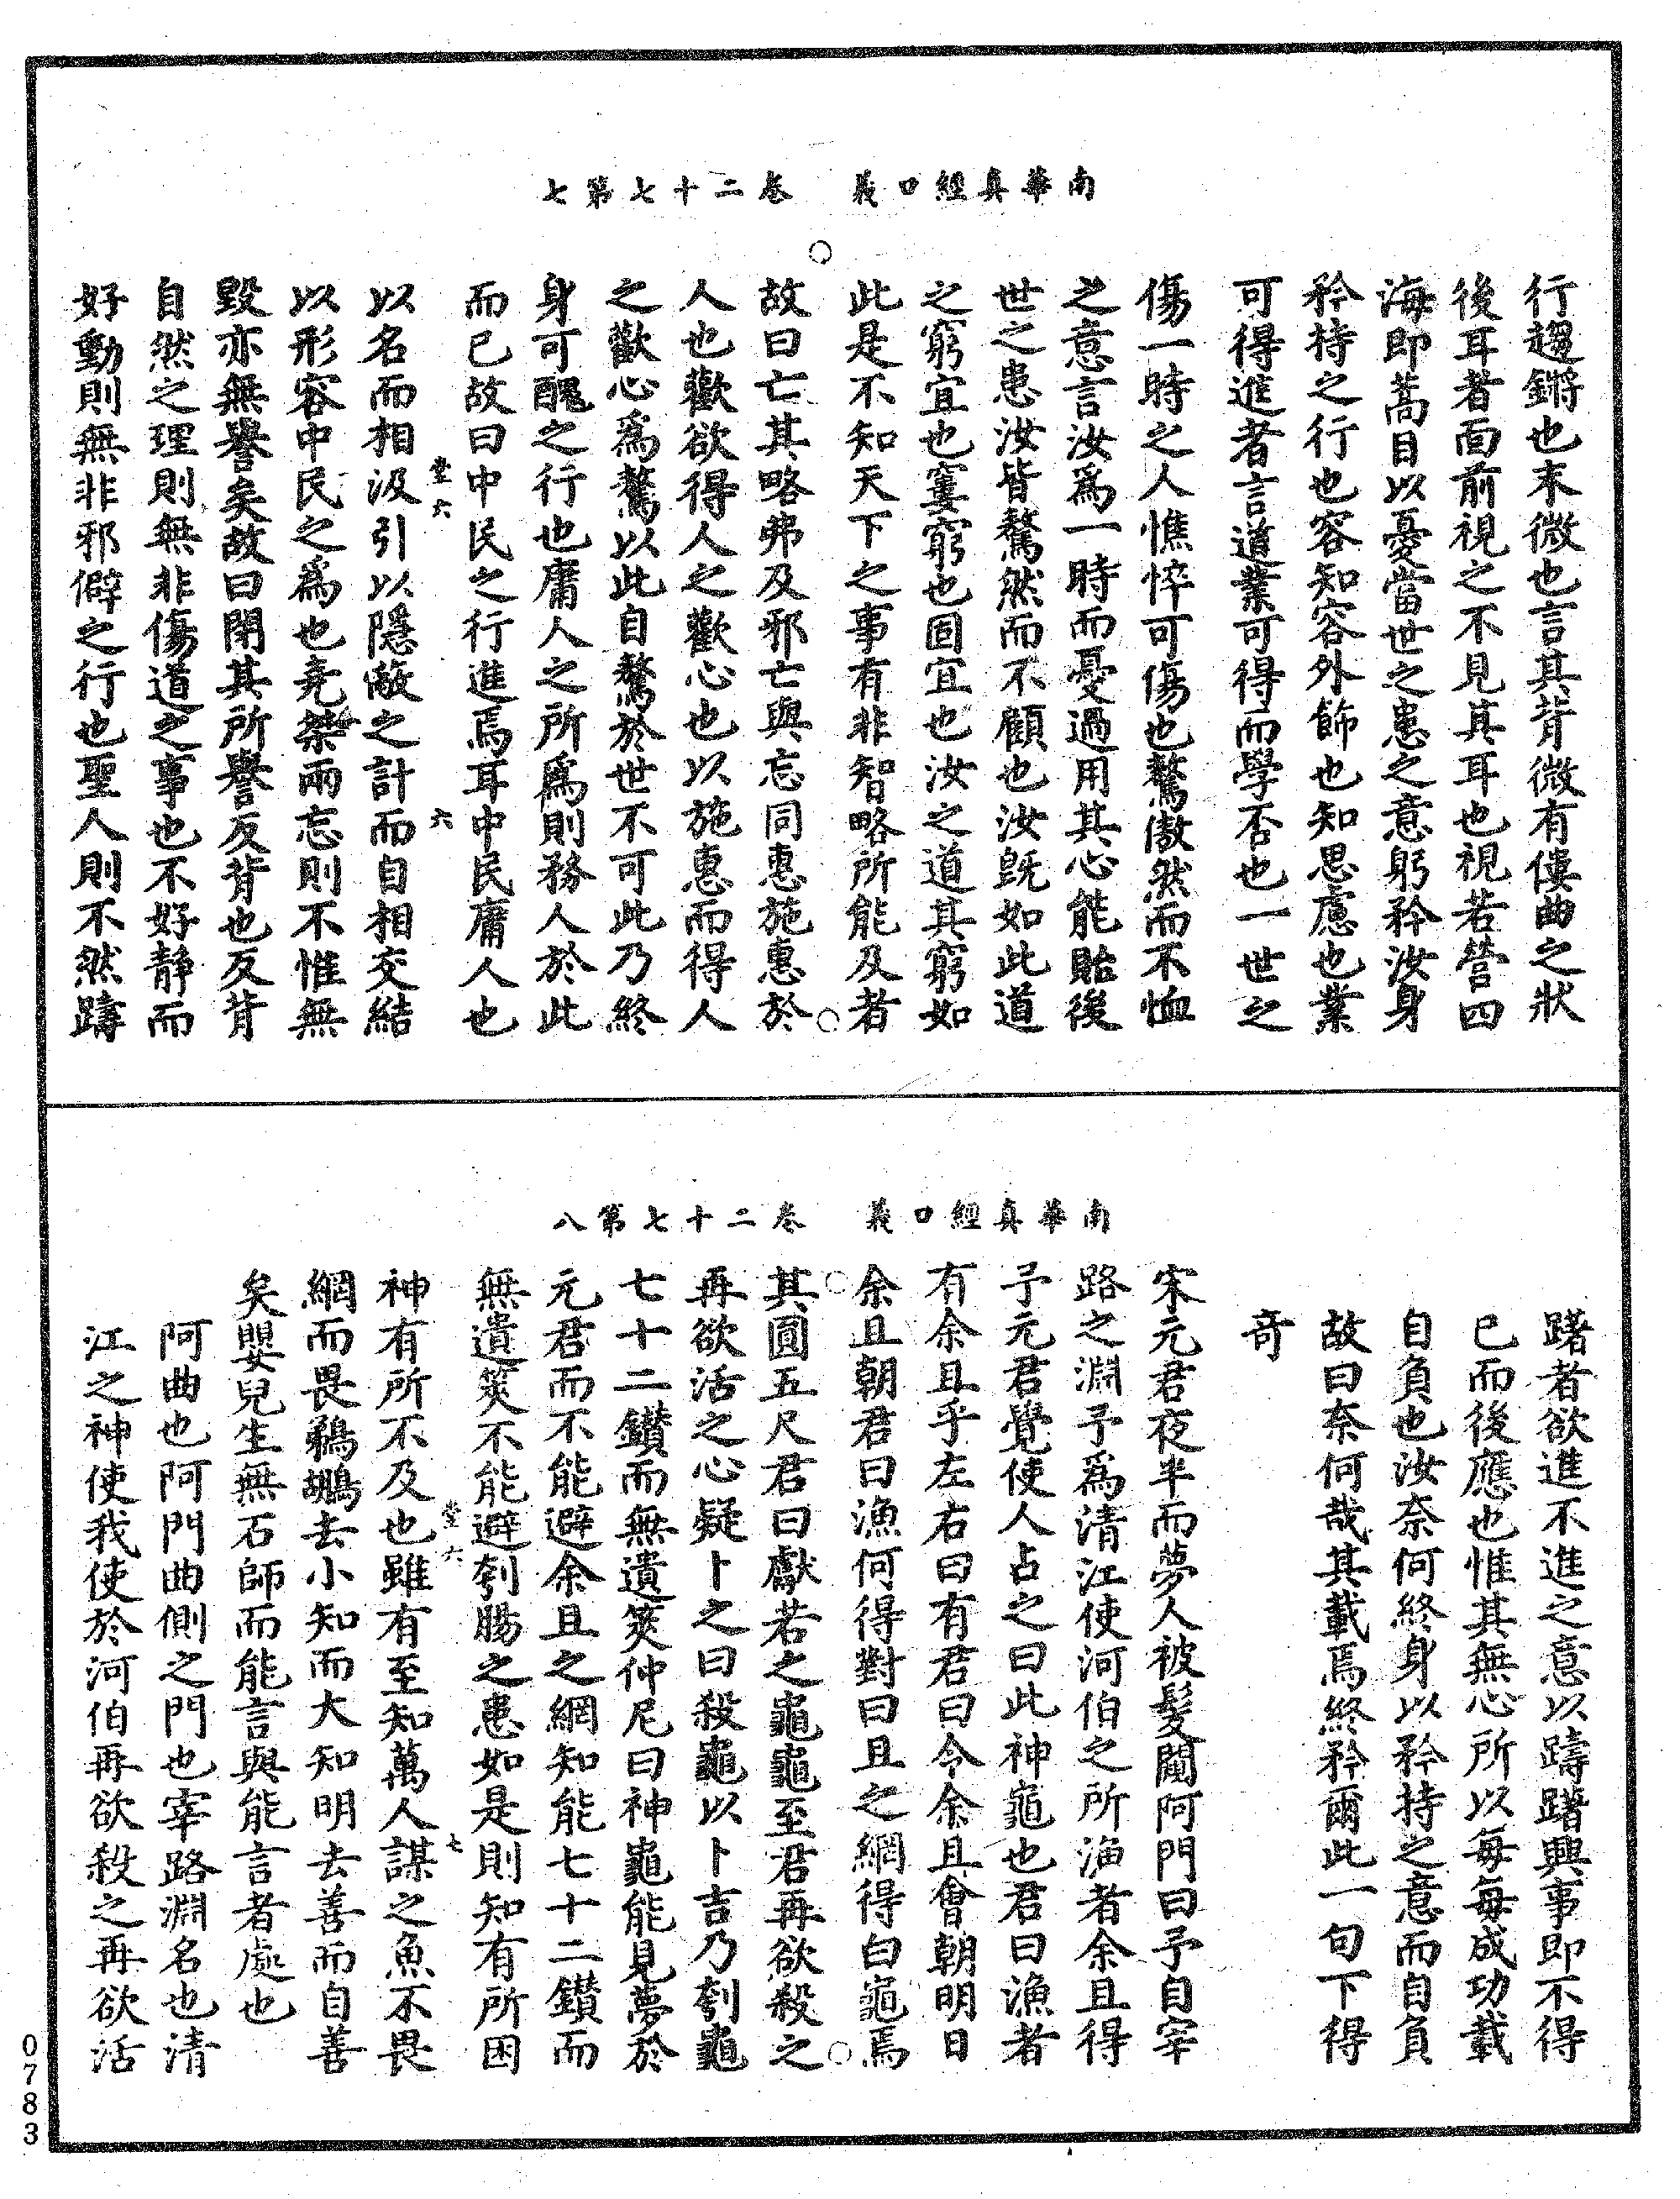 南華真經口義　卷二十七第七
行趨鏘也末微也言其背微有僂曲之狀
後耳者面前視之不見其耳也視若營四
海即蒿目以憂當世之患之意躬矜汝身
矜持之行也容知容外飾也知思慮也業
可得進者言道業可得而學否也一世之
傷一時之人憔悴可傷也驁傲然而不恤
之意言汝為一時而憂過用其心能貽後
世之患汝皆驁然而不顧也汝既如此道
之窮宜也窶窮也固宜也汝之道其窮如
此是不知天下之事有非智略所能及者
故曰亡其略弗及邪亡與忘同惠施惠於
人也歡欲得人之歡心也以施惠而得人
之歡心為驁以此自驁於世不可此乃終
身可醜之行也庸人之所為則務人於此
而已故曰中民之行進焉耳中民庸人也
堂六　六
以名而相汲引以隱敝之計而自相交結
以形容中民之為也堯桀兩忘則不惟無
毀亦無譽矣故曰閉其所譽反背也反背
自然之理則無非傷道之事也不好靜而
好動則無非邪僻之行也聖人則不然躊
南華真經口義　卷二十七第八
躇者欲進不進之意以躊躇興事即不得
已而後應也惟其無心所以每每成功載
自負也汝奈何終身以矜持之意而自負
故曰奈何哉其載焉終矜爾此一句下得
奇
宋元君夜半而夢人被髮闚阿門曰予自宰
路之淵予為清江使河伯之所漁者余且得
予元君覺使人占之曰此神龜也君曰漁者
有余且乎左右曰有君曰令余且會朝明日
余且朝君曰漁何得對曰且之網得白龜焉
其圓五尺君曰獻若之龜龜至君再欲殺之
再欲活之心疑卜之曰殺龜以卜吉乃刳龜
七十二鑽而無遺筴仲尼曰神龜能見夢於
元君而不能避余且之網知能七十二鑽而
無遺筴不能避刳腸之患如是則知有所困
堂六　七
神有所不及也雖有至知萬人謀之魚不畏
網而畏鵜鶘去小知而大知明去善而自善
矣嬰兒生無石師而能言與能言者處也
阿曲也阿門曲側之門也宰路淵名也清
江之神使我使於河伯再欲殺之再欲活
0783